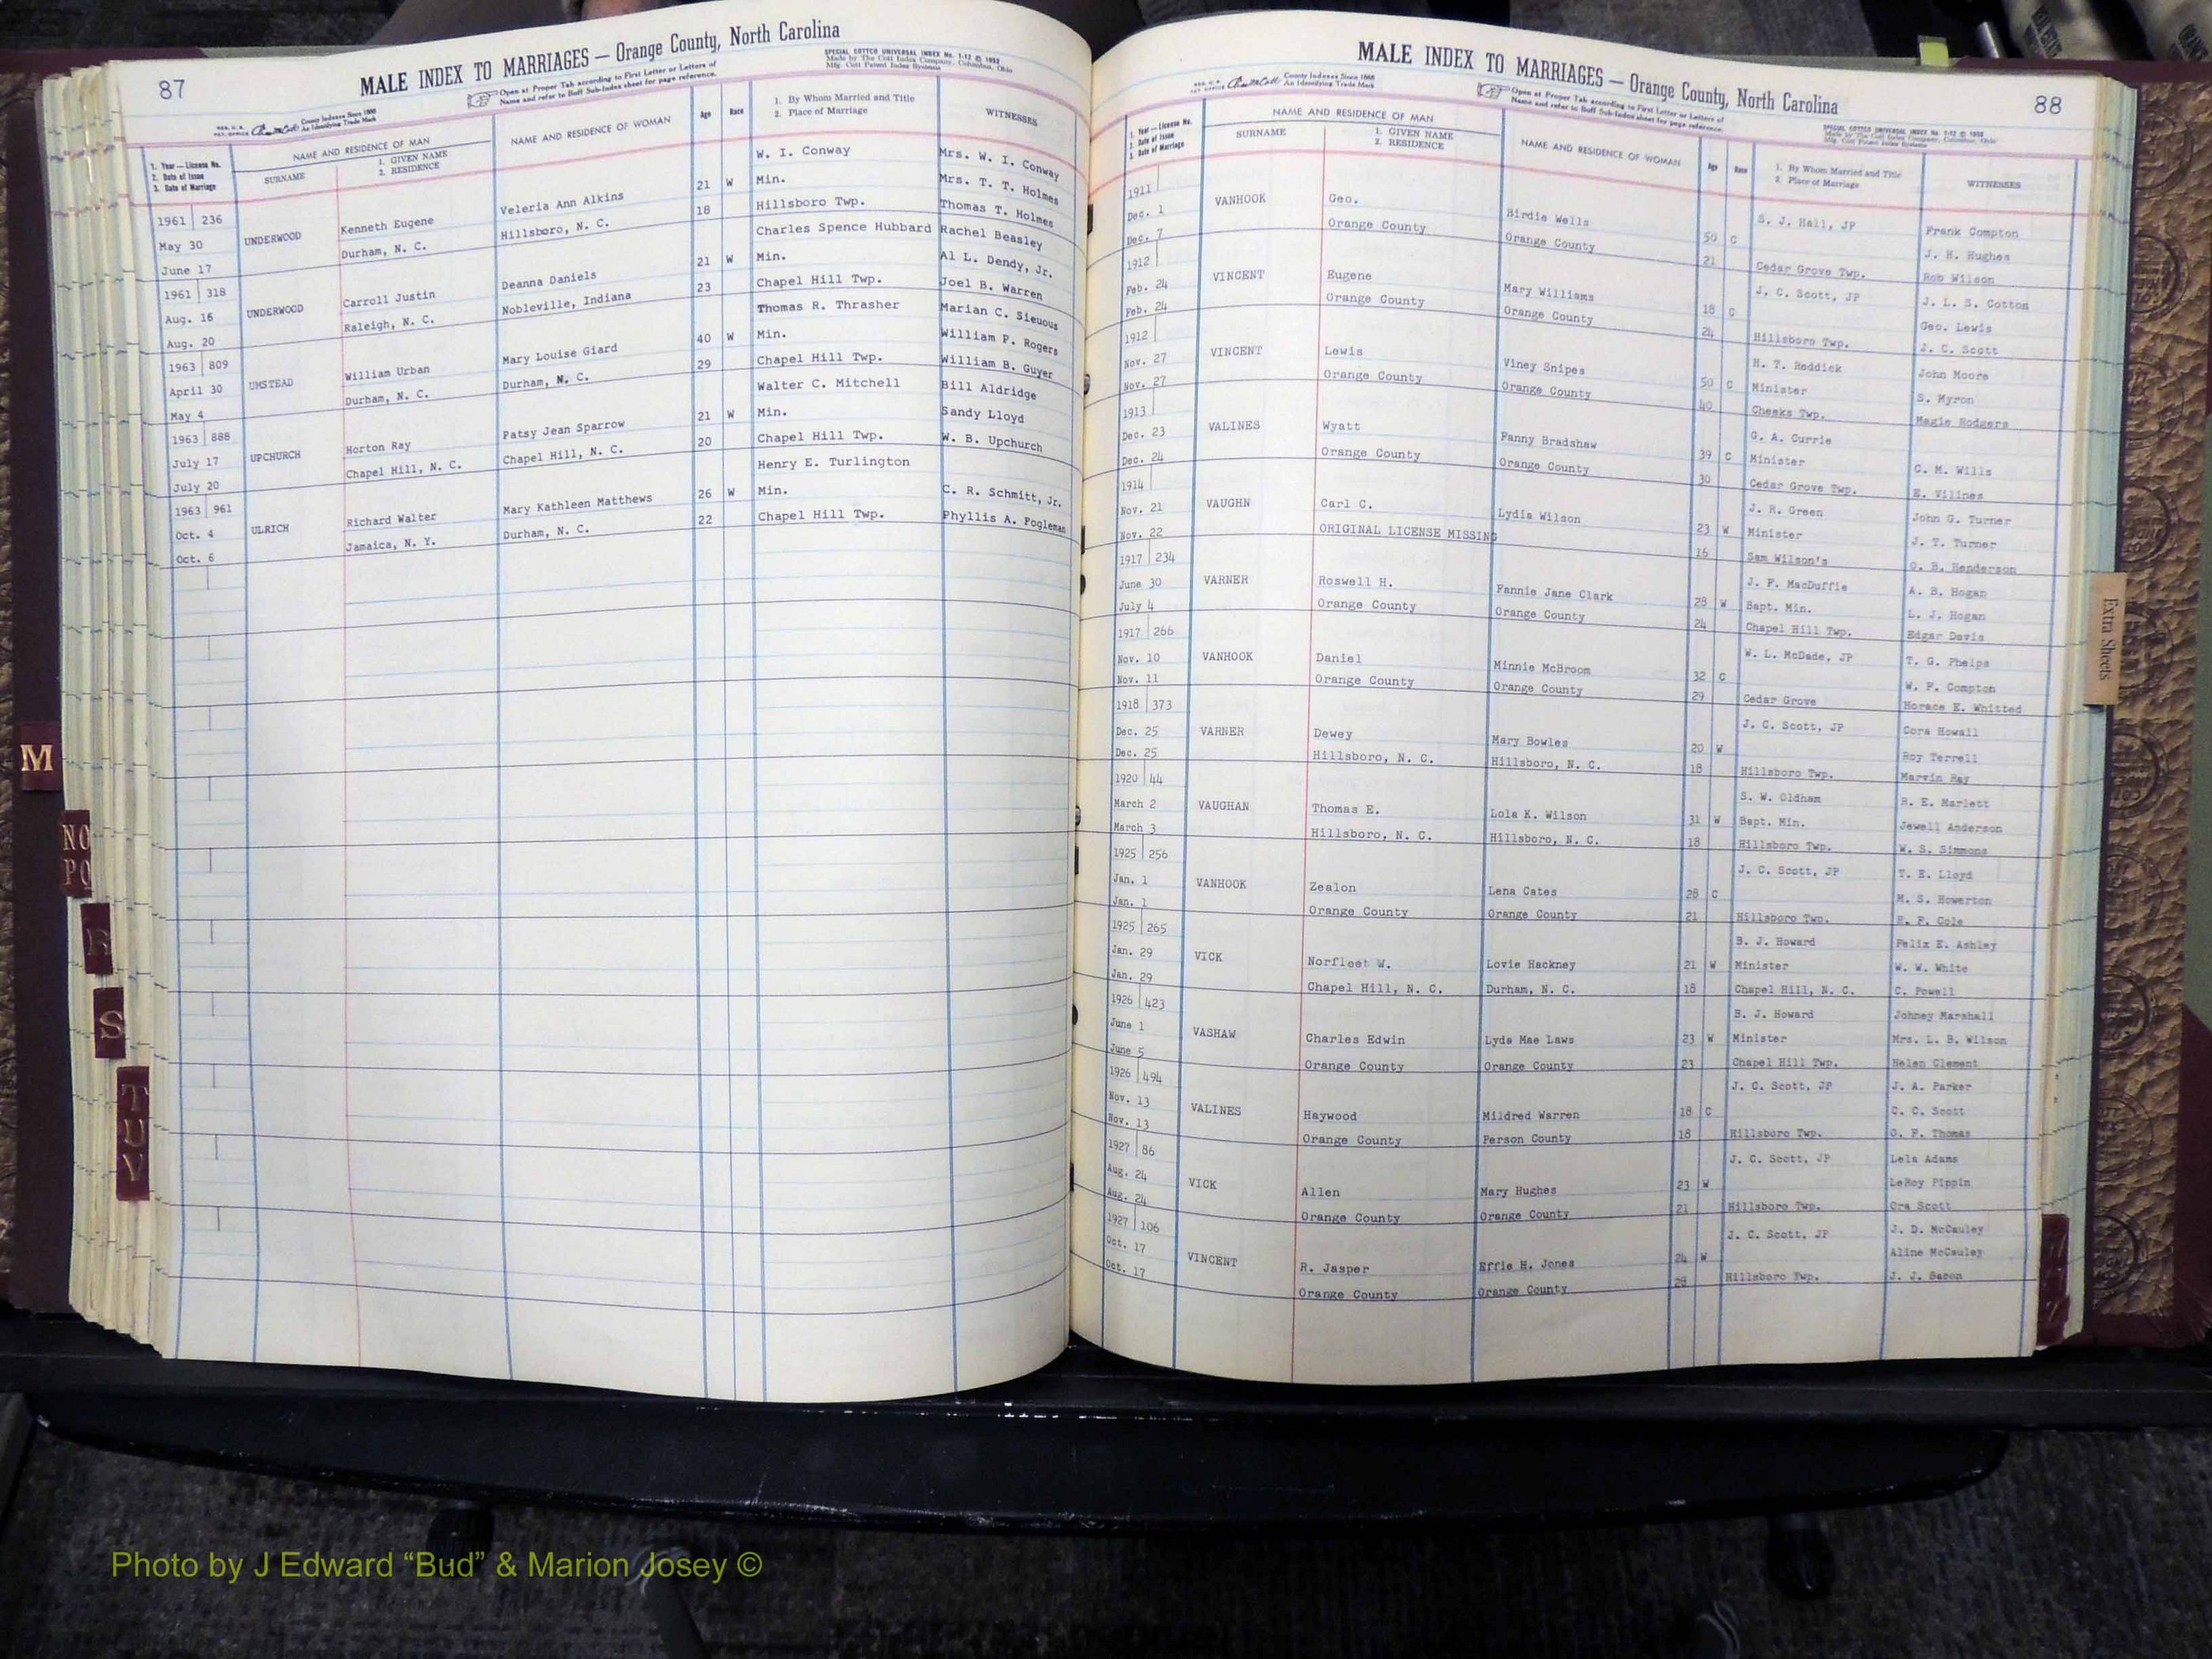 87
MALE INDEX TO MARRIAGES — Orange County, North Carolina
SPECIAL COTTCO UNIVERSAL INDEX No. 1-12 © 1952
Made by The Cott Index Company, Columbus, Ohio
Mfg. Cott Patent Index Systems
Open at Proper Tab according to First Letter or Letters of
Name and refer to Buff Sub-Index sheet for page reference.
County Indexes Since 1888
An Identifying Trade Mark
1. Year — License No.
2. Date of Issue
3. Date of Marriage
NAME AND RESIDENCE OF MAN
SURNAME
1. GIVEN NAME
2. RESIDENCE
NAME AND RESIDENCE OF WOMAN
Age
Race
1. By Whom Married and Title
2. Place of Marriage
WITNESSES
W. I. Conway Mrs. W. I. Conway
1961 236 UNDERWOOD Kenneth Eugene Veleria Ann Alkins 21 W Min. Mrs. T. T. Holmes
May 30 Durham, N. C. Hillsboro, N. C. 18 Hillsboro Twp. Thomas T. Holmes
June 17
Charles Spence Hubbard Rachel Beasley
1961 318 UNDERWOOD Carroll Justin Deanna Daniels 21 W Min. Al L. Dendy, Jr.
Aug. 16 Raleigh, N. C. Nobleville, Indiana 23 Chapel Hill Twp. Joel B. Warren
Aug. 20
Thomas R. Thrasher Marian C. Sieuous
1963 809 UMSTEAD William Urban Mary Louise Giard 40 W Min. William P. Rogers
April 30 Durham, N. C. Durham, N. C. 29 Chapel Hill Twp. William B. Guyer
May 4
Walter C. Mitchell Bill Aldridge
1963 888 UPCHURCH Horton Ray Patsy Jean Sparrow 21 W Min. Sandy Lloyd
July 17 Chapel Hill, N. C. Chapel Hill, N. C. 20 Chapel Hill Twp. W. B. Upchurch
July 20
Henry E. Turlington
1963 961 ULRICH Richard Walter Mary Kathleen Matthews 26 W Min. C. R. Schmitt, Jr.
Oct. 4 Jamaica, N. Y. Durham, N. C. 22 Chapel Hill Twp. Phyllis A. Fogleman
Oct. 6
M
NO
PQ
R
S
T
U
V
MALE INDEX TO MARRIAGES — Orange County, North Carolina
88
County Indexes Since 1888
An Identifying Trade Mark
Open at Proper Tab according to First Letter or Letters of
Name and refer to Buff Sub-Index sheet for page reference.
SPECIAL COTTCO UNIVERSAL INDEX No. 1-12 © 1952
Made by The Cott Index Company, Columbus, Ohio
Mfg. Cott Patent Index Systems
1. Year — License No.
2. Date of Issue
3. Date of Marriage
NAME AND RESIDENCE OF MAN
SURNAME
1. GIVEN NAME
2. RESIDENCE
NAME AND RESIDENCE OF WOMAN
Age
Race
1. By Whom Married and Title
2. Place of Marriage
WITNESSES
1911 S. J. Hall, JP Frank Compton
Dec. 1 VANHOOK Geo. Birdie Wells 50 C J. H. Hughes
Dec. 7 Orange County Orange County 21 Cedar Grove Twp. Rob Wilson
1912 J. C. Scott, JP J. L. S. Cotton
Feb. 24 VINCENT Eugene Mary Williams 18 C Geo. Lewis
Feb. 24 Orange County Orange County 24 Hillsboro Twp. J. C. Scott
1912 H. T. Reddick John Moore
Nov. 27 VINCENT Lewis Viney Snipes 50 C Minister S. Myron
Nov. 27 Orange County Orange County 40 Cheeks Twp. Magie Hodgers
1913 G. A. Currie
Dec. 23 VALINES Wyatt Fanny Bradshaw 39 C Minister C. M. Wills
Dec. 24 Orange County Orange County 30 Cedar Grove Twp. E. Vilines
1914 J. R. Green John G. Turner
Nov. 21 VAUGHN Carl C. Lydia Wilson 23 W Minister J. T. Turner
Nov. 22 ORIGINAL LICENSE MISSING 16 Sam Wilson's O. B. Henderson
1917 234 J. F. MacDuffie A. B. Hogan
June 30 VARNER Roswell H. Fannie Jane Clark 28 W Bapt. Min. L. J. Hogan
July 4 Orange County Orange County 24 Chapel Hill Twp. Edgar Davis
1917 266 W. L. McDade, JP T. G. Phelps
Nov. 10 VANHOOK Daniel Minnie McBroom 32 C W. F. Compton
Nov. 11 Orange County Orange County 29 Cedar Grove Horace E. Whitted
1918 373 J. C. Scott, JP Cora Howall
Dec. 25 VARNER Dewey Mary Bowles 20 W Roy Terrell
Dec. 25 Hillsboro, N. C. Hillsboro, N. C. 18 Hillsboro Twp. Marvin Ray
1920 44 S. W. Oldham R. E. Marlett
March 2 VAUGHAN Thomas E. Lola K. Wilson 31 W Bapt. Min. Jewell Anderson
March 3 Hillsboro, N. C. Hillsboro, N. C. 18 Hillsboro Twp. W. S. Simmons
1925 256 J. C. Scott, JP T. E. Lloyd
Jan. 1 VANHOOK Zealon Lena Cates 28 C M. S. Howerton
Jan. 1 Orange County Orange County 21 Hillsboro Twp. R. F. Cole
1925 265 B. J. Howard Felix E. Ashley
Jan. 29 VICK Norfleet W. Lovie Hackney 21 W Minister W. W. White
Jan. 29 Chapel Hill, N. C. Durham, N. C. 18 Chapel Hill, N. C. C. Powell
1926 423 B. J. Howard Johney Marshall
June 1 VASHAW Charles Edwin Lyda Mae Laws 23 W Minister Mrs. L. B. Wilson
June 5 Orange County Orange County 23 Chapel Hill Twp. Helen Clement
1926 494 J. C. Scott, JP J. A. Parker
Nov. 13 VALINES Haywood Mildred Warren 18 C C. C. Scott
Nov. 13 Orange County Person County 18 Hillsboro Twp. O. F. Thomas
1927 86 J. C. Scott, JP Lela Adams
Aug. 24 VICK Allen Mary Hughes 23 W LeRoy Pippin
Aug. 24 Orange County Orange County 21 Hillsboro Twp. Ora Scott
1927 106 J. C. Scott, JP J. D. McCauley
Oct. 17 VINCENT R. Jasper Effie H. Jones 24 W Aline McCauley
Oct. 17 Orange County Orange County 28 Hillsboro Twp. J. J. Bacon
Extra Sheets
Photo by J Edward “Bud” & Marion Josey ©